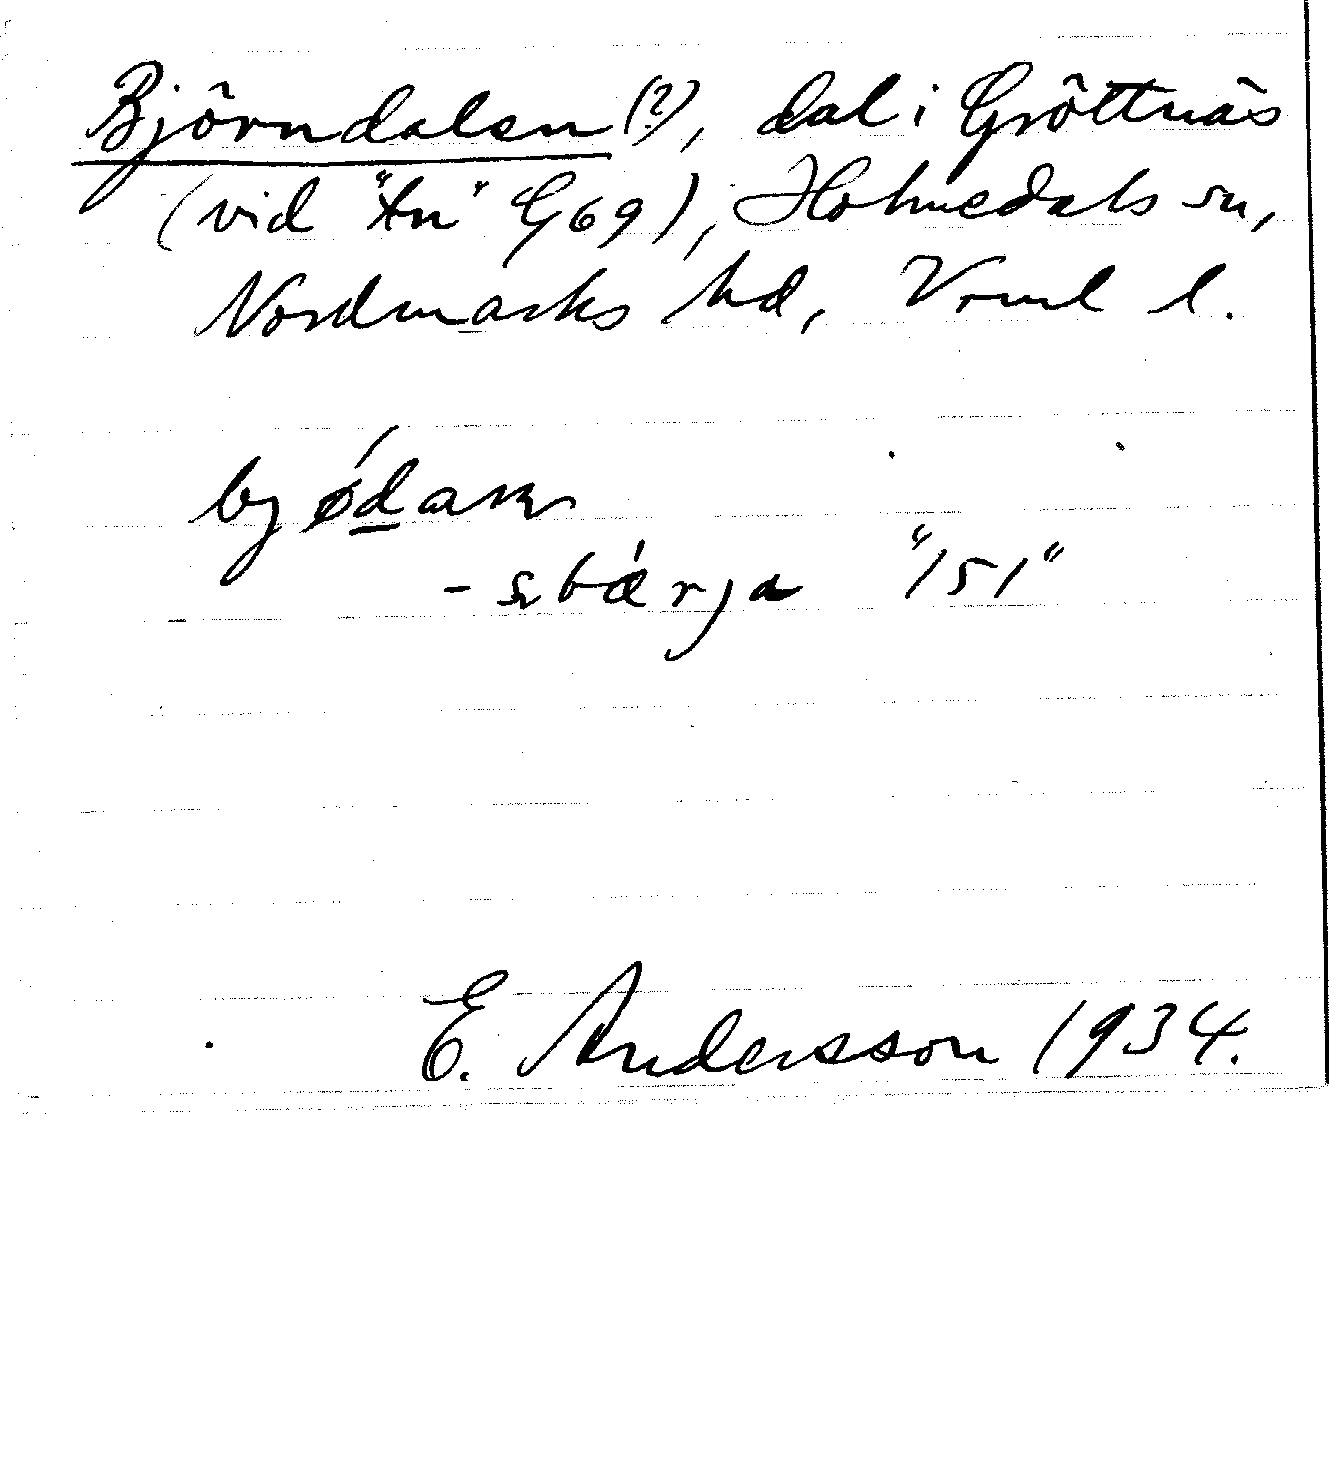 Björndalen (?), dal i Gröttnäs
(vid "tn" G69), Holmedals sn,
Nordmarks hd, Vrml l.
bjǿdaɴ
-sbǽrja "151"
E. Andersson 1934.